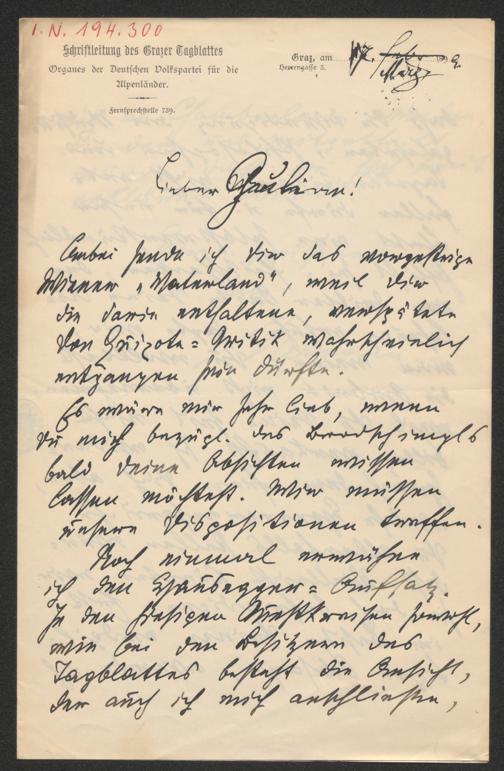 I. N. 194.300
Schriftleitung des Grazer Tagblattes
Organes der Deutschen Volkspartei für die
Alpenländer.
Fernsprechstelle 739.
Graz, am 17. März 1899.
Herrengasse 3.
Lieber
Anbei sende ich dir das vorgestrige
Wiener „Vaterland", weil dir
die darin enthaltene, verspätete
Don Quixote-Kritik wahrscheinlich
entgangen sein dürfte.
Es wäre mir sehr lieb, wenn
du mich bezügl. des
bald deine Absichten wissen
lassen möchtest. Wir müssen
unsere Dispositionen treffen.
Noch einmal erwähne
ich den Hausegger-Aufsatz.
In den hiesigen Musikkreisen sowohl,
wie bei den Besitzern des
Tagblattes besteht die Ansicht,
der auch ich mich anschließe,